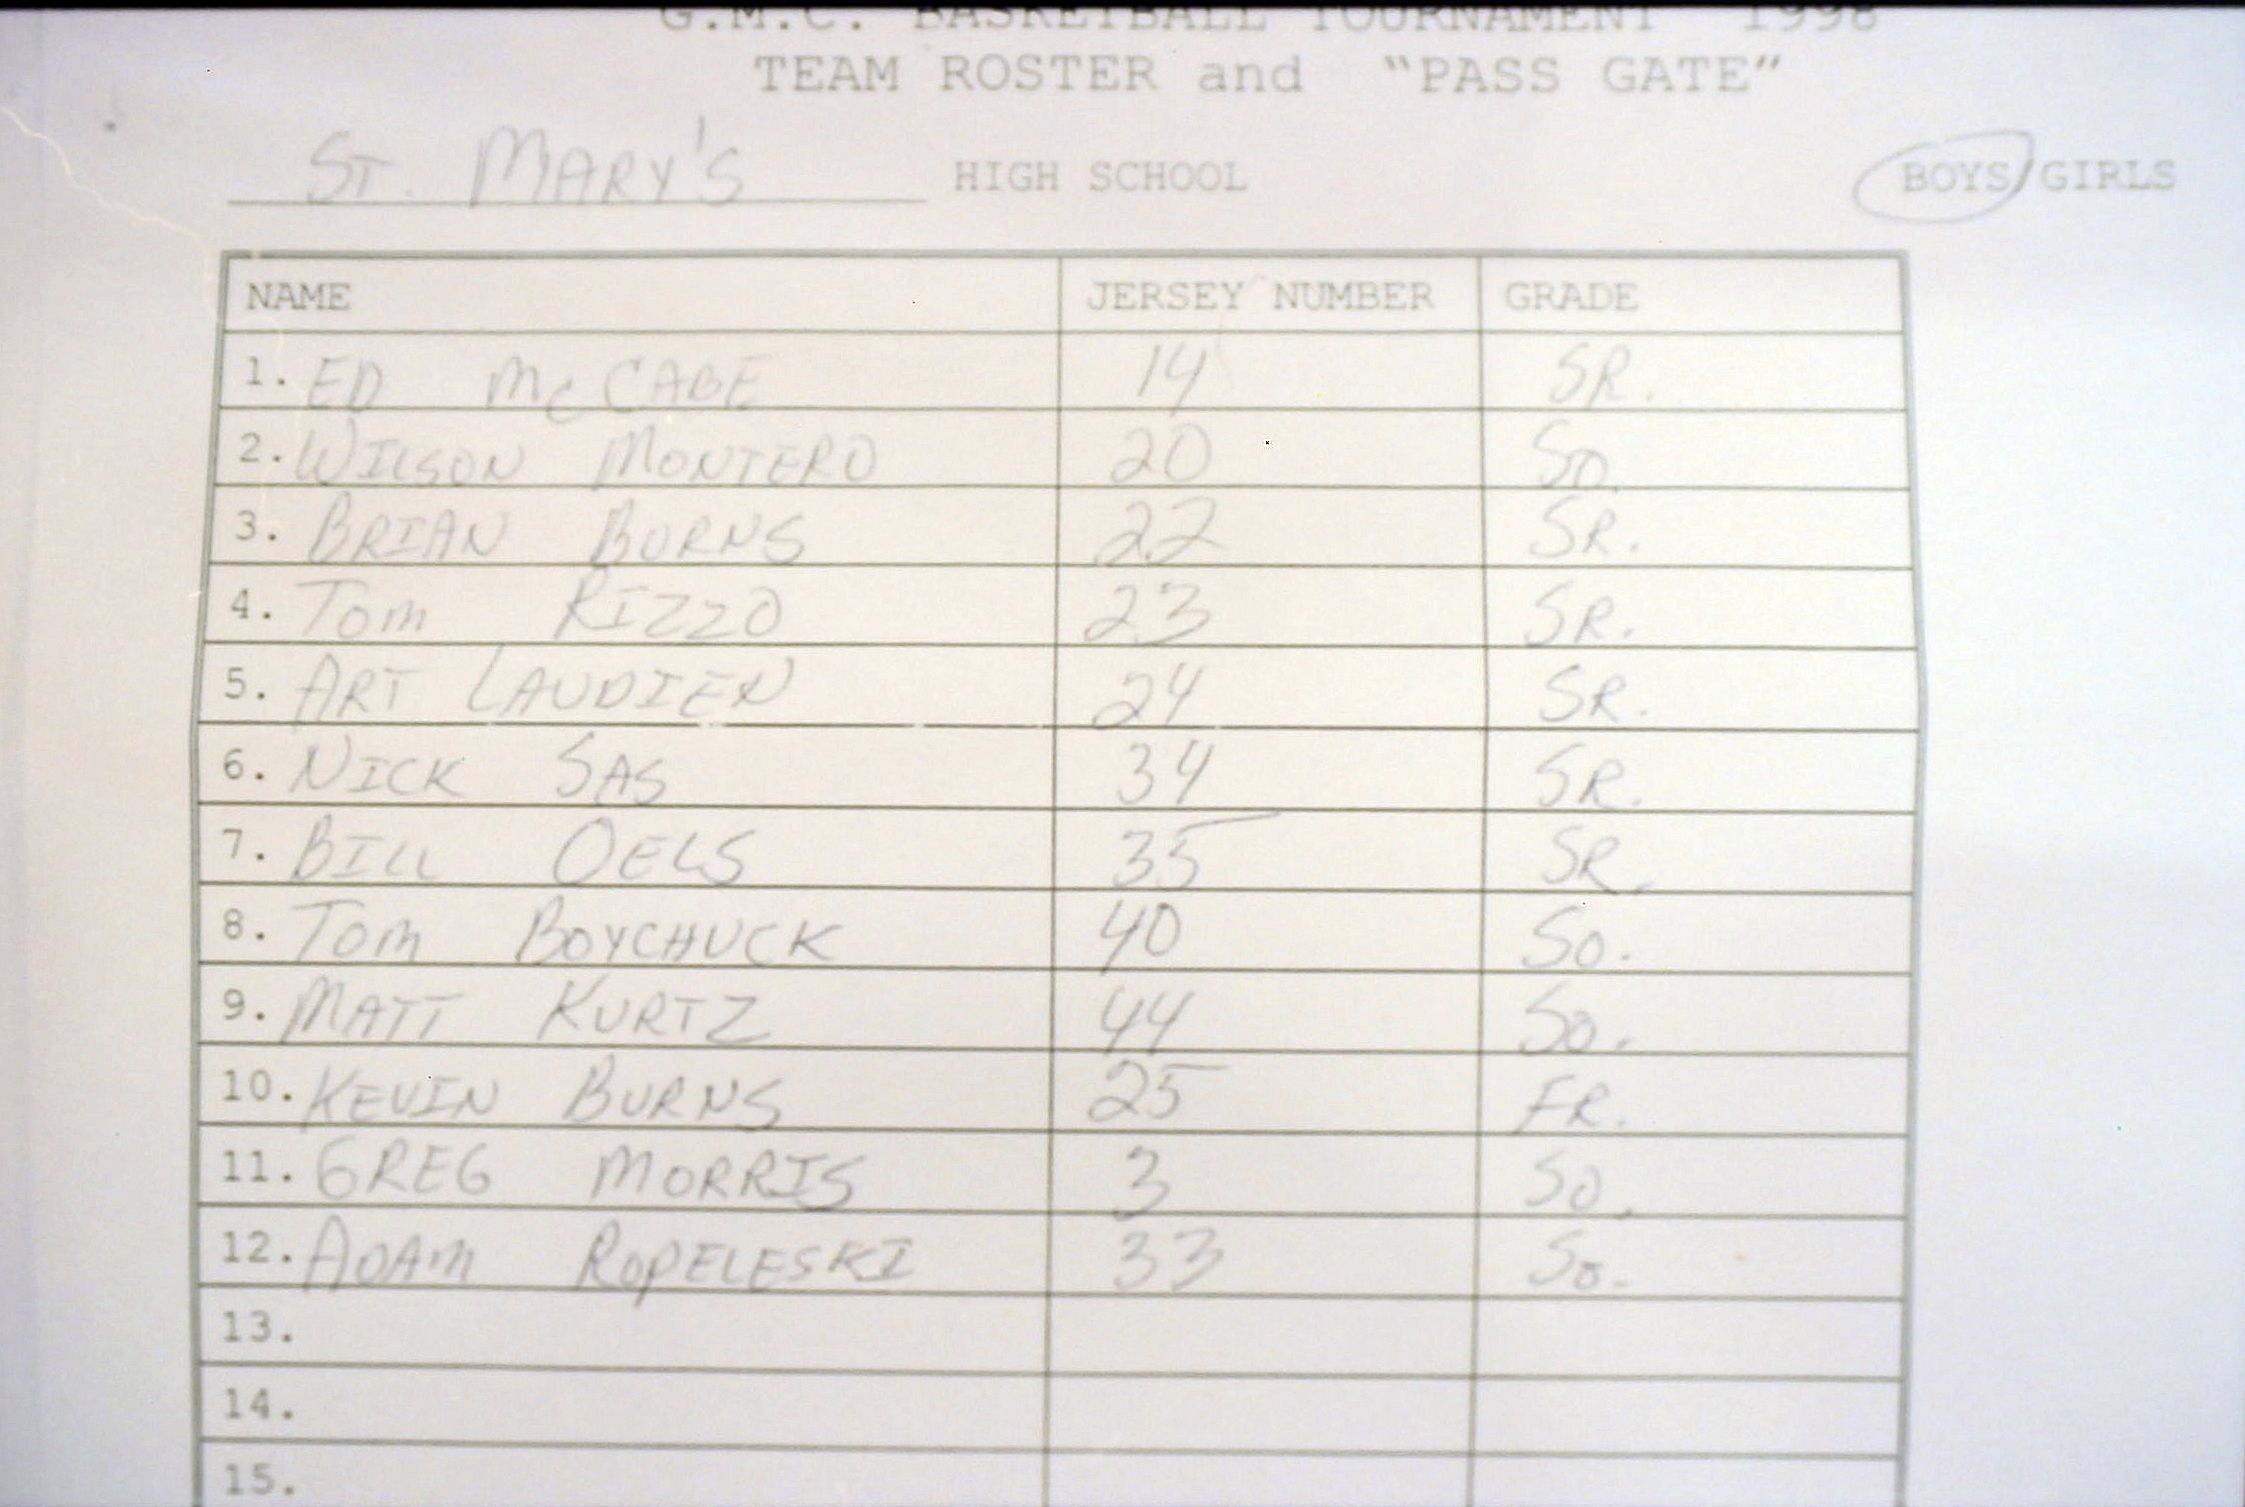 G.M.C. BASKETBALL TOURNAMENT 1998
TEAM ROSTER and "PASS GATE"
ST. MARY'S HIGH SCHOOL BOYS/GIRLS
NAME JERSEY NUMBER GRADE
1. ED McCABE 14 SR.
2. WILSON MONTERO 20 SO.
3. BRIAN BURNS 22 SR.
4. TOM RIZZO 23 SR.
5. ART LAUDIEN 24 SR.
6. NICK SAS 34 SR.
7. BILL OELS 35 SR.
8. TOM BOYCHUCK 40 SO.
9. MATT KURTZ 44 SO.
10. KEVIN BURNS 25 FR.
11. GREG MORRIS 3 SO.
12. ADAM ROPELESKI 33 SO.
13.
14.
15.